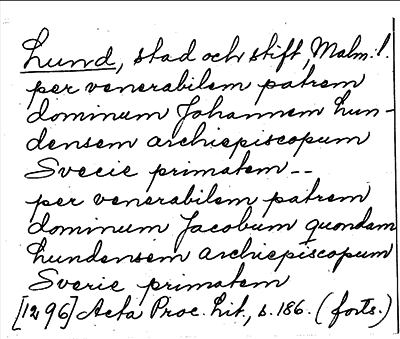 Lund, stad och stift, Malm. l.
per venerabilem patrem
dominum Johannem Lun-
densem archiepiscopum
Svecie primatem --
per venerabilem patrem
dominum Jacobum quondam
Lundensem archiepiscopum
Sverie primatem
[1296] Acta Proc. Lit., s. 186. (forts.)